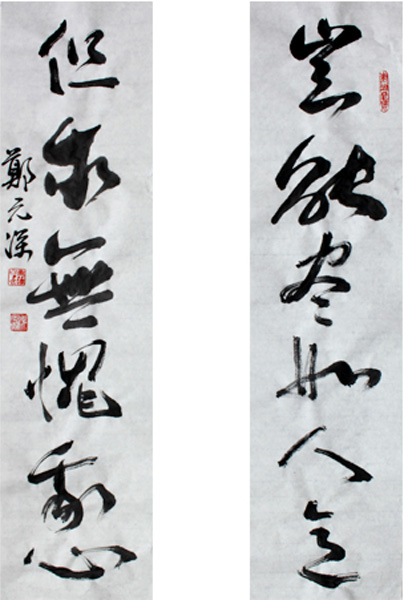 豈能尽如人意
但求無愧我心
鄭元深